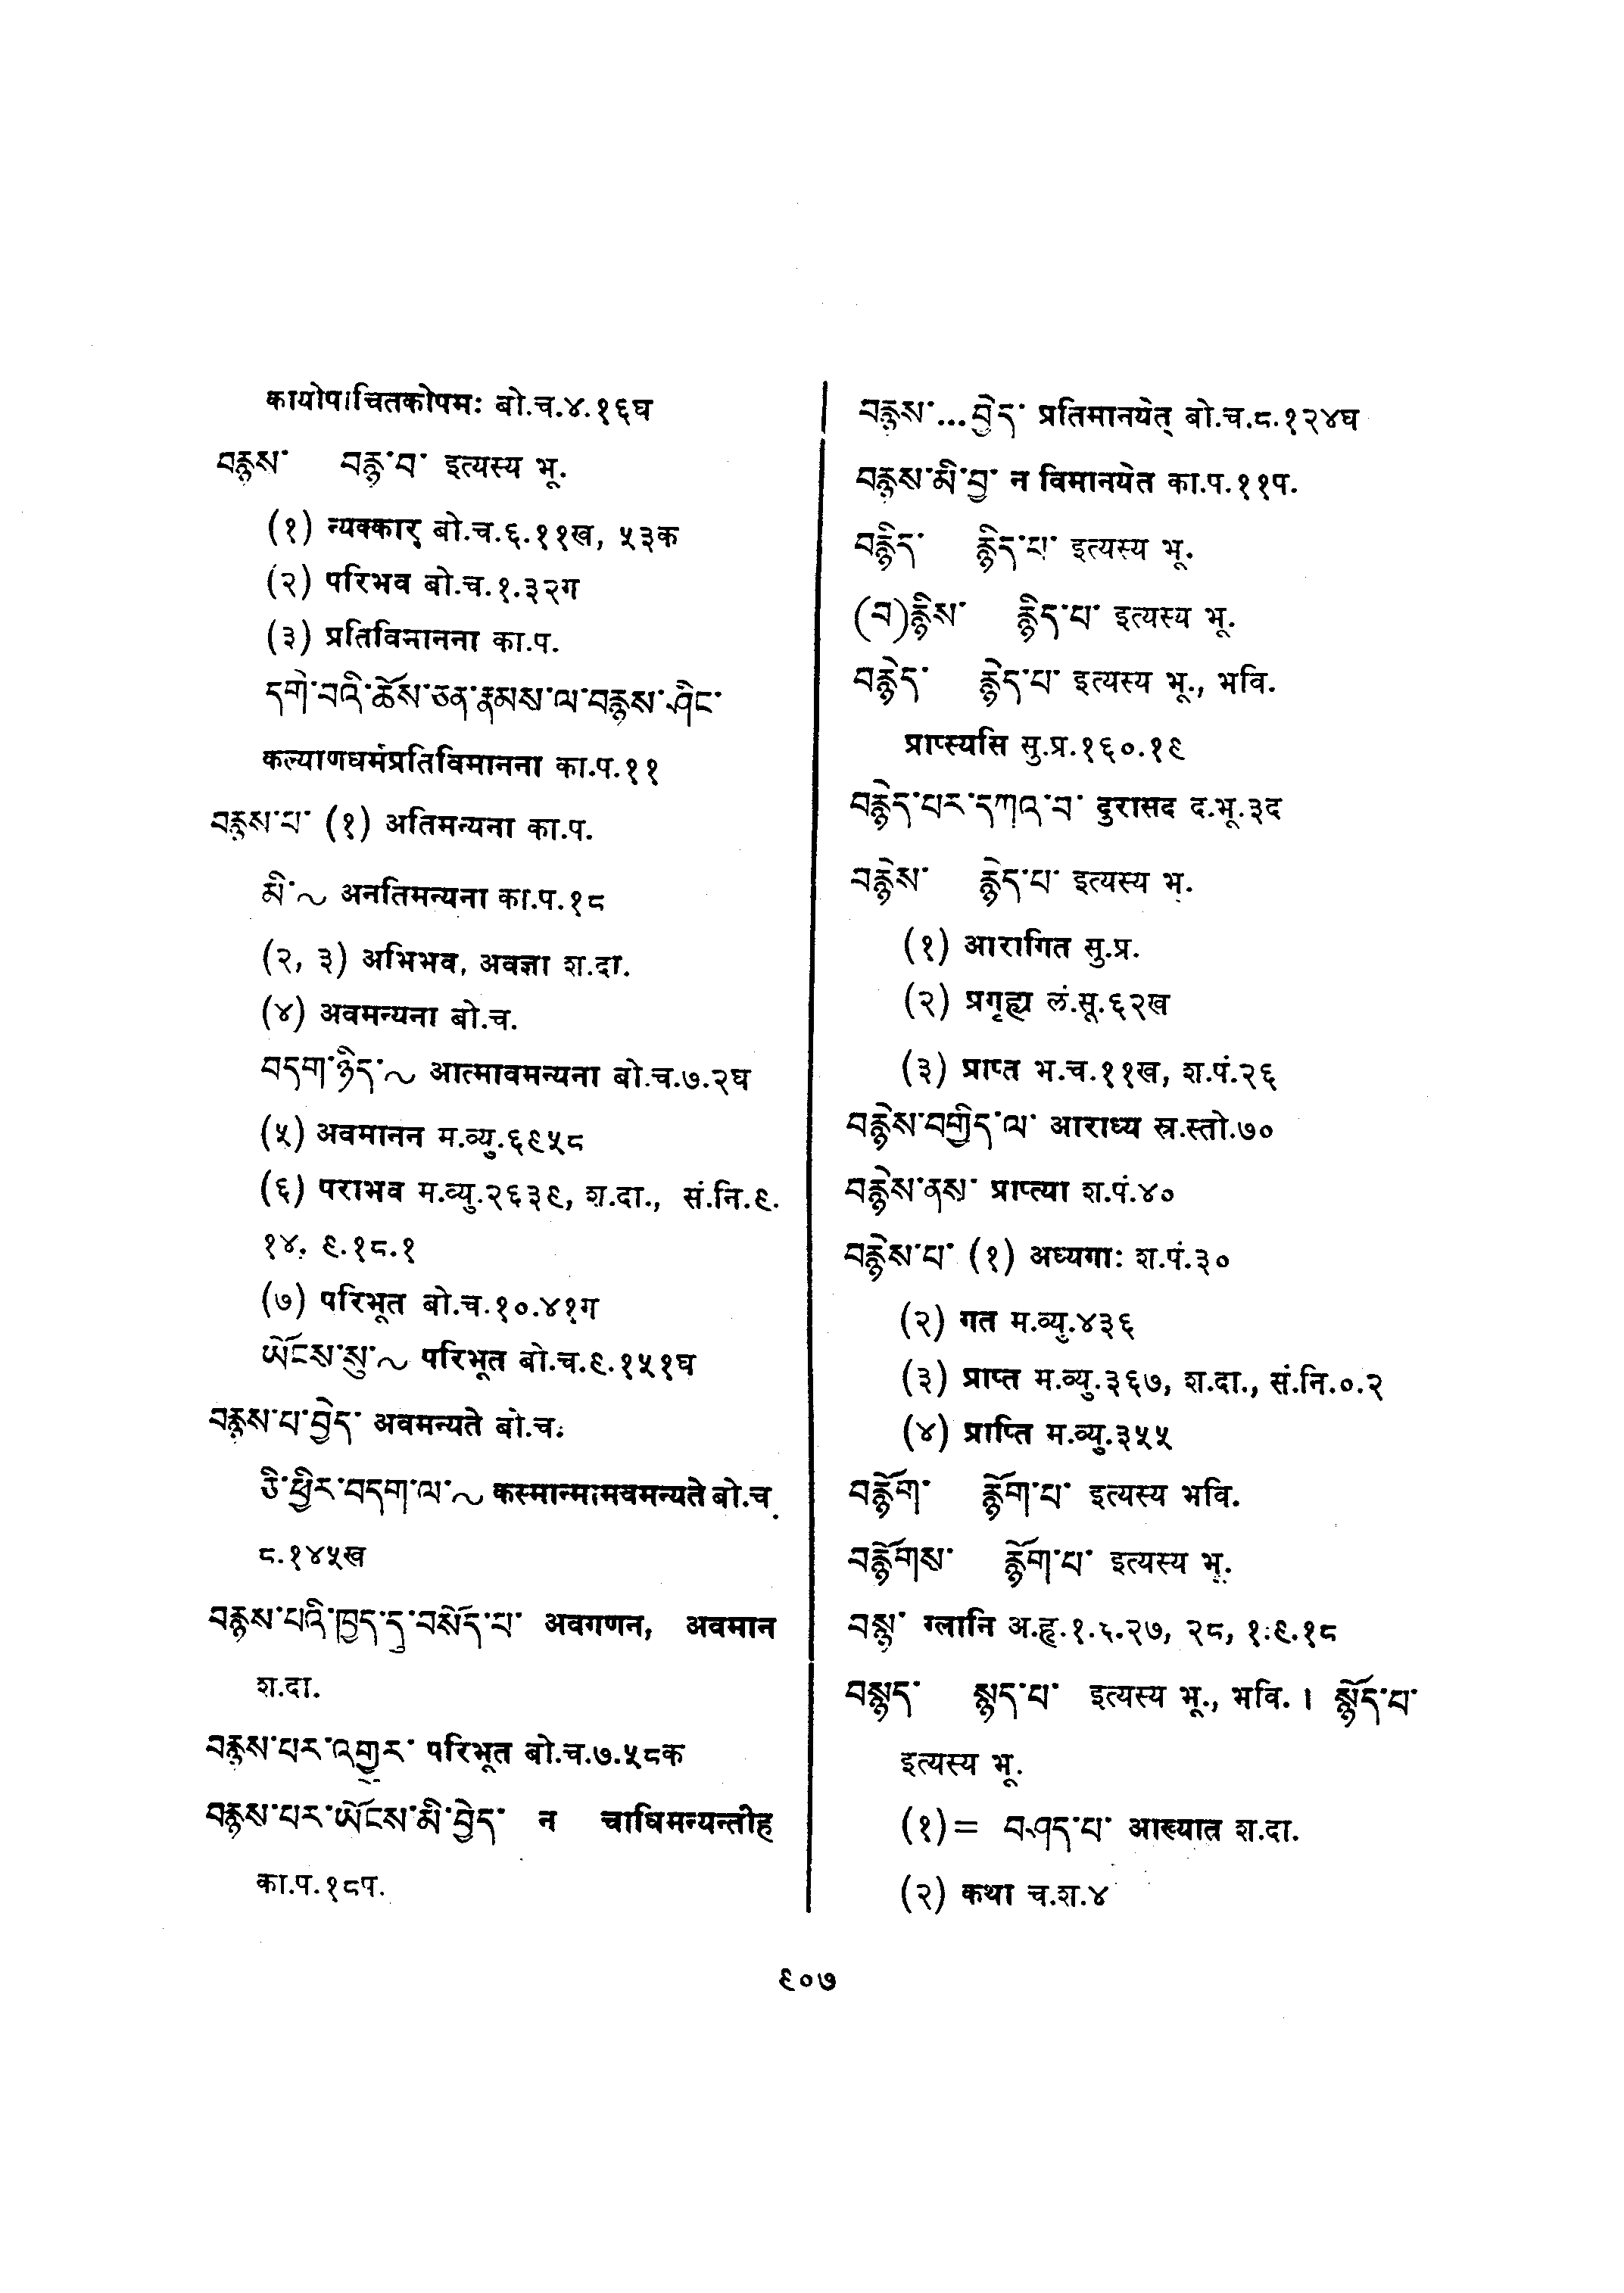 कायोपाचितकोपमः बो.च.४.१६घ
བརྙས་ བརྙ་བ་ इत्यस्य भू.
(१) न्यक्कार बो.च.६.११ख, ५३क
(२) परिभव बो.च.१.३२ग
(३) प्रतिविमानना का.प.
དགེ་བའི་ཆོས་ཅན་རྣམས་ལ་བརྙས་ཤིང་
कल्याणधर्मप्रतिविमानना का.प.११
བརྙས་པ་ (१) अतिमन्यना का.प.
མི་~ अनतिमन्यना का.प.१८
(२, ३) अभिभव, अवज्ञा श.दा.
(४) अवमन्यना बो.च.
བདག་ཉིད་~ आत्मावमन्यना बो.च.७.२घ
(५) अवमानन म.व्यु.६९५८
(६) पराभव म.व्यु.२६३९, श.दा., सं.नि.९.
१४. ९.१८.१
(७) परिभूत बो.च.१०.४१ग
ཡོངས་སུ་~ परिभूत बो.च.९.१५१घ
བརྙས་པ་བྱེད་ अवमन्यते बो.च.
ཅི་ཕྱིར་བདག་ལ་~ कस्मान्मामवमन्यते बो.च.
८.१४५ख
བརྙས་པའི་ཁྱད་དུ་བསོད་པ་ अवगणन, अवमान
श.दा.
བརྙས་པར་འགྱུར་ परिभूत बो.च.७.५८क
བརྙས་པར་ཡོངས་མི་བྱེད་ न चाधिमन्यन्तीह
का.प.१८प.
བརྙས་...བྱེད་ प्रतिमानयेत् बो.च.८.१२४घ
བརྙས་མི་བྱ་ न विमानयेत का.प.११प.
བརྙིད་ རྙིད་པ་ इत्यस्य भू.
(བ)རྙིས་ རྙིད་པ་ इत्यस्य भू.
བརྙེད་ རྙེད་པ་ इत्यस्य भू., भवि.
प्राप्स्यसि सु.प्र.१६०.१९
བརྙེད་པར་དཀའ་བ་ दुरासद द.भू.३द
བརྙེས་ རྙེད་པ་ इत्यस्य भू.
(१) आरागित सु.प्र.
(२) प्रगृह्य लं.सू.६२ख
(३) प्राप्त भ.च.११ख, श.पं.२६
བརྙེས་བགྱིད་ལ་ आराध्य स्र.स्तो.७०
བརྙེས་ནས་ प्राप्त्या श.पं.४०
བརྙེས་པ་ (१) अध्यगाः श.पं.३०
(२) गत म.व्यु.४३६
(३) प्राप्त म.व्यु.३६७, श.दा., सं.नि.०.२
(४) प्राप्ति म.व्यु.३५५
བརྙོག་ རྙོག་པ་ इत्यस्य भवि.
བརྙོགས་ རྙོག་པ་ इत्यस्य भू.
བསྙ་ ग्लानि अ.हृ.१.६.२७, २८, १.९.१८
བསྙད་ སྙད་པ་ इत्यस्य भू., भवि. । སྙོད་པ་
इत्यस्य भू.
(१)= བཤད་པ་ आख्यात श.दा.
(२) कथा च.श.४
९०७